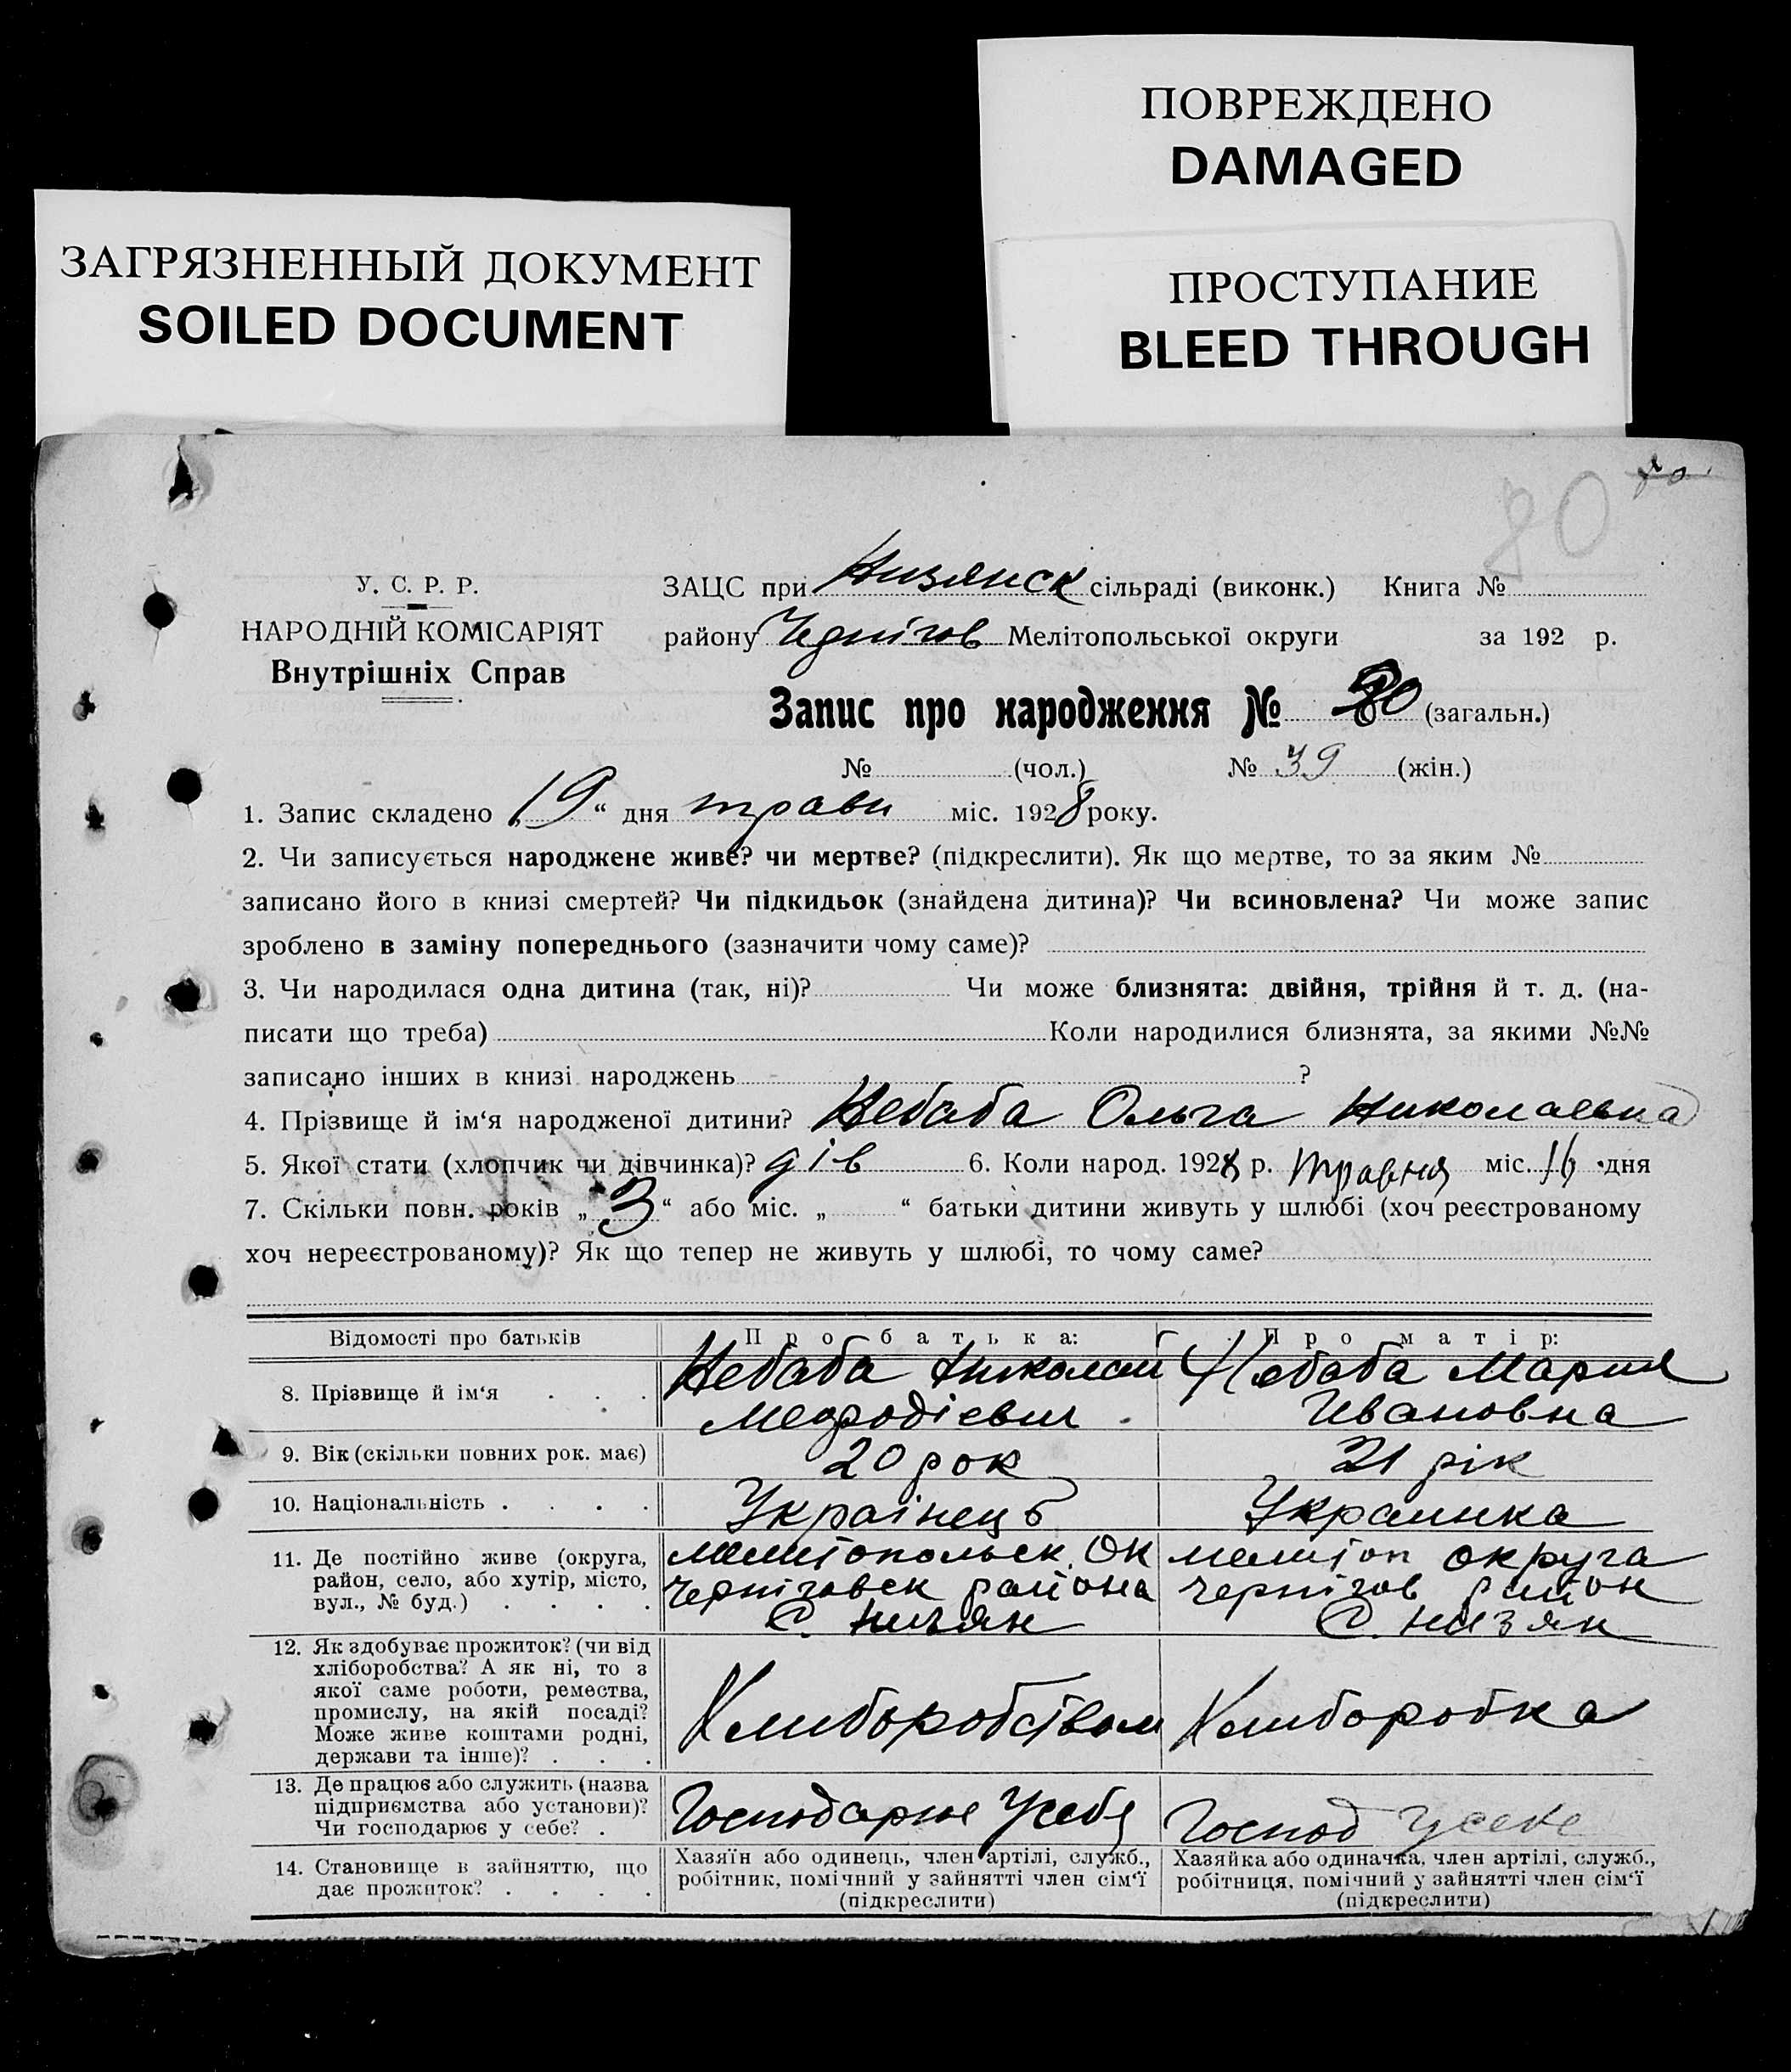 ПОВРЕЖДЕНО
DAMAGED
ЗАГРЯЗНЕННЫЙ ДОКУМЕНТ
SOILED DOCUMENT
ПРОСТУПАНИЕ
BLEED THROUGH
80
У. С. Р. Р.
НАРОДНІЙ КОМІСАРІЯТ
Внутрішніх Справ
ЗАЦС при Низянск сільраді (виконк.) Книга №
району Чернігов Мелітопольської округи за 192 р.
Запис про народження № 80 (загальн.)
№ (чол.) № 39 (жін.)
1. Запис складено „19“ дня травн міс. 1928 року.
2. Чи записується народжене живе? чи мертве? (підкреслити). Як що мертве, то за яким №
записано його в книзі смертей? Чи підкидьок (знайдена дитина)? Чи всиновлена? Чи може запис
зроблено в заміну попереднього (зазначити чому саме)?
3. Чи народилася одна дитина (так, ні)? Чи може близнята: двійня, трійня й т. д. (на-
писати що треба) Коли народилися близнята, за якими №№
записано інших в книзі народжень ?
4. Прізвище й ім‘я народженої дитини? Небаба Ольга Николаевна
5. Якої стати (хлопчик чи дівчинка)? дів 6. Коли народ. 1928 р. травня міс. 16 дня
7. Скільки повн. років „3“ або міс. „ “ батьки дитини живуть у шлюбі (хоч реєстрованому
хоч нереєстрованому)? Як що тепер не живуть у шлюбі, то чому саме?
Відомості про батьків Про батька: Про матір:
8. Прізвище й ім‘я . . . Небаба Николай Небаба Мария
Мефодієвич Ивановна
9. Вік (скільки повних рок. має) 20 рок 21 рік
10. Національність . . . . Українець Украинка
11. Де постійно живе (округа, район, село, або хутір, місто, вул., № буд.) . . . .
Мелитопольск. Ок Мелитоп округа
Чернізовск района Чернігов район
С. Низян С. Низян
12. Як здобуває прожиток? (чи від
хліборобства? А як ні, то з
якої саме роботи, ремества,
промислу, на якій посаді?
Може живе коштами родні,
держави та інше)? . . .
Хлиборобством Хлиборобка
13. Де працює або служить (назва
підприємства або установи)?
Чи господарює у себе? .
Господарює Усебя Господ усебе
14. Становище в зайняттю, що
дає прожиток? . . . .
Хазяїн або одинець, член артілі, служб.,
робітник, помічний у зайнятті член сім‘ї
(підкреслити)
Хазяйка або одиначка, член артілі, служб.,
робітниця, помічний у зайнятті член сім‘ї
(підкреслити)